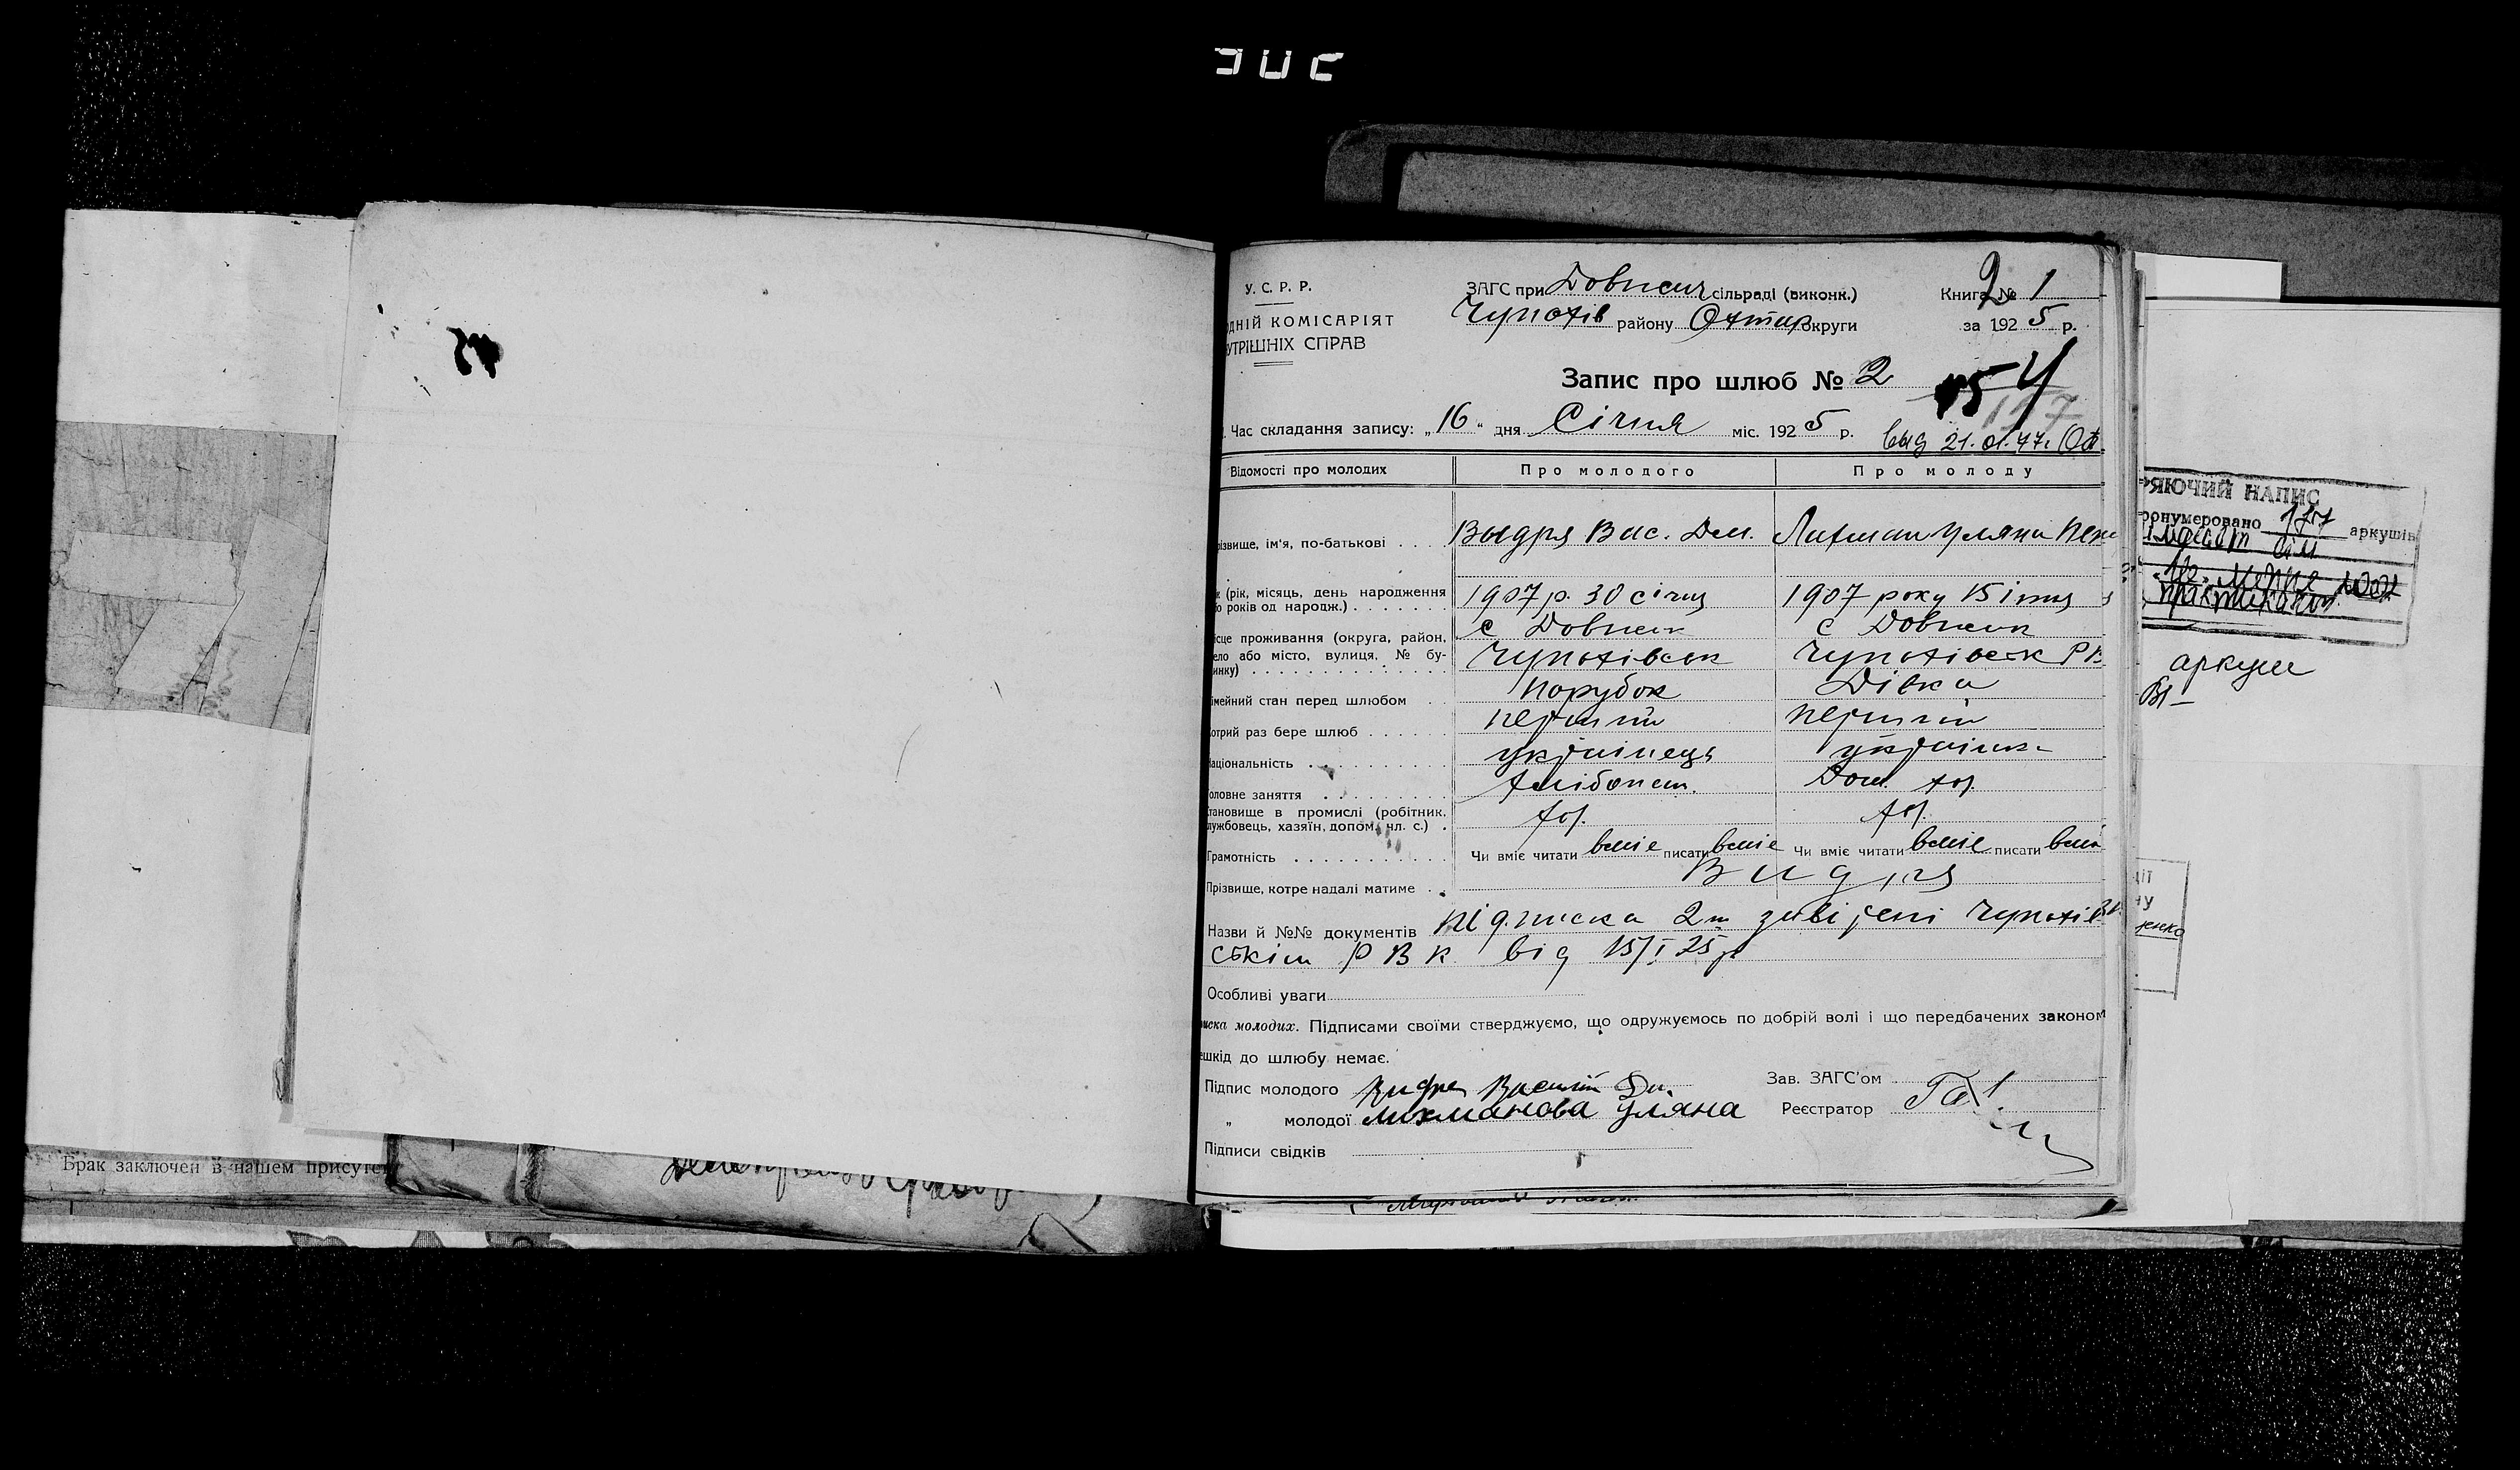 У. С. Р. Р.
ЗАГС при Довжич сільраді (виконк.)
Книга № 1
2
ДНІЙ КОМІСАРІЯТ
УТРІШНІХ СПРАВ
Чупахів району Охтир округи
за 1925 р.
Запис про шлюб № 2
154
157
Час складання запису: „16“ дня Січня міс. 1925 р.
выд 21.01.47г.
Відомості про молодих
Про молодого
Про молоду
ізвище, ім'я, по-батькові
Выдря Вас. Дм.
Лахман Уляна
к (рік, місяць, день народження
о років од народж.)
1907 р. 30 січня
1907 року 15
ісце проживання (округа, район,
ело або місто, вулиця, № бу-
инку)
с Довжик
Чупахівськ
с Довжик
Чупахівськ РВ
імейний стан перед шлюбом
Парубок
Дівка
отрий раз бере шлюб
перший
перший
аціональність
українець
українк
оловне заняття
хлібопаш.
Дом. хоз.
тановище в промислі (робітник,
лужбовець, хазяїн, допом. чл. с.)
хоз.
хоз.
Грамотність
Чи вміє читати вміє писати вміє
Чи вміє читати вміє писати вміє
Прізвище, котре надалі матиме
Видря
Назви й №№ документів підписка 2 завірені Чупахів
ськім РВК від 15/I 25 р
Особливі уваги
иска молодих. Підписами своїми стверджуємо, що одружуємось по добрій волі і що передбачених законом
ешкід до шлюбу немає.
Підпис молодого Видря Василій Дм.
„ молодої Лихманова Уляна
Підписи свідків
Зав. ЗАГС'ом
Реєстратор
ЯЮЧИЙ НАПИС
ронумеровано 157 аркушів
аркуш
ВІ
діт
ну
енко
Брак заключен в нашем присутс